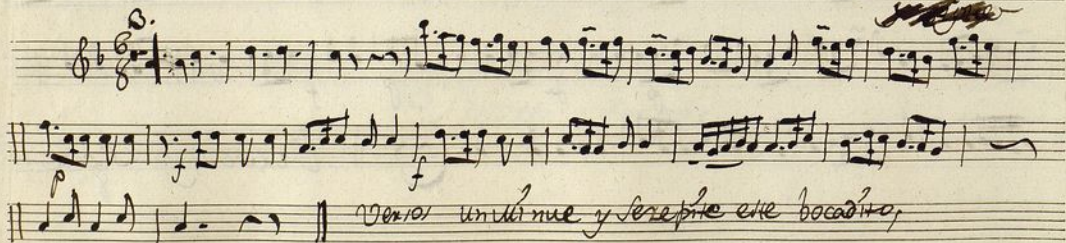 3.
6
8
p f f
Versos un Minue y se repite este bocadito,